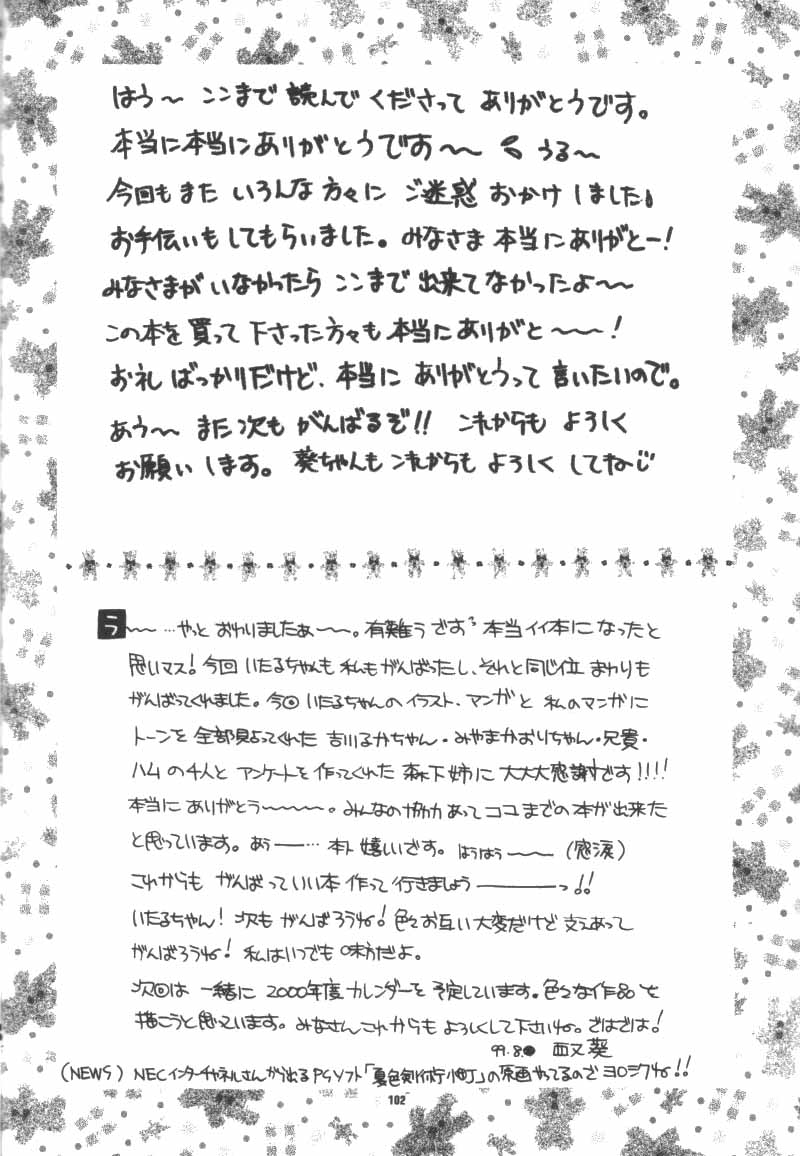 はう〜 ここまで 読んで くださって ありがとうです。
本当に本当にありがとうですお〜〜 うる〜
今回も また いろんな 方々に ご迷惑 おかけ しました
お手伝いも してもらいました。みなさま 本当に ありがとー!
みなさまが いなかったら ここまで 出来て なかったよ〜〜
この本を 買って 下さった 方々も 本当に ありがと〜〜!
お礼 ばっかりだけど、本当に ありがとうって 言いたいので。
あう〜 また 次も がんばるぞ!! これからも よろしく
お願い します。葵ちゃんも これからも よろしく してね
う〜〜…やっと おわりましたぁ〜〜。有難う ござお 本当 イイ本に なったと
思いマス! 今回 いたるちゃんも 私も がんばったし、それと同じ位 まわりも
がんばってくれました。今回 いたるちゃんの イラスト、マンガと 私の マンガに
トーンを 全部貼ってくれた 吉川るかちゃん・みやまかおりちゃん・兄貴・
ハム の4人と アンケートを 作ってくれた 森下姉に 大大大感謝です!!!!
本当に ありがとう〜〜〜〜。みんなの協力 あって ココまでの 本が 出来た
と思っています。あぅ ――… 嬉しいです。はうはう〜〜 (感涙)
これからも がんばって いい本 作って 行きましょう ―――っ!!
いたるちゃん! 次も がんばろうね! 色々お互い 大変だけど 支えあって
がんばろうね! 私はいつでも 味方だよ。
次回は 一緒に 2000年度 カレンダーを 予定しています。色々な作品を
描こうと 思っています。みなさん これからも よろしくして下さいね。ではでは!
99.8 葵
(NEWS) NECインターチャネルさんから出る PSソフト「夏色剣術小町」の 原画 やってるので ヨロシクね!!
102